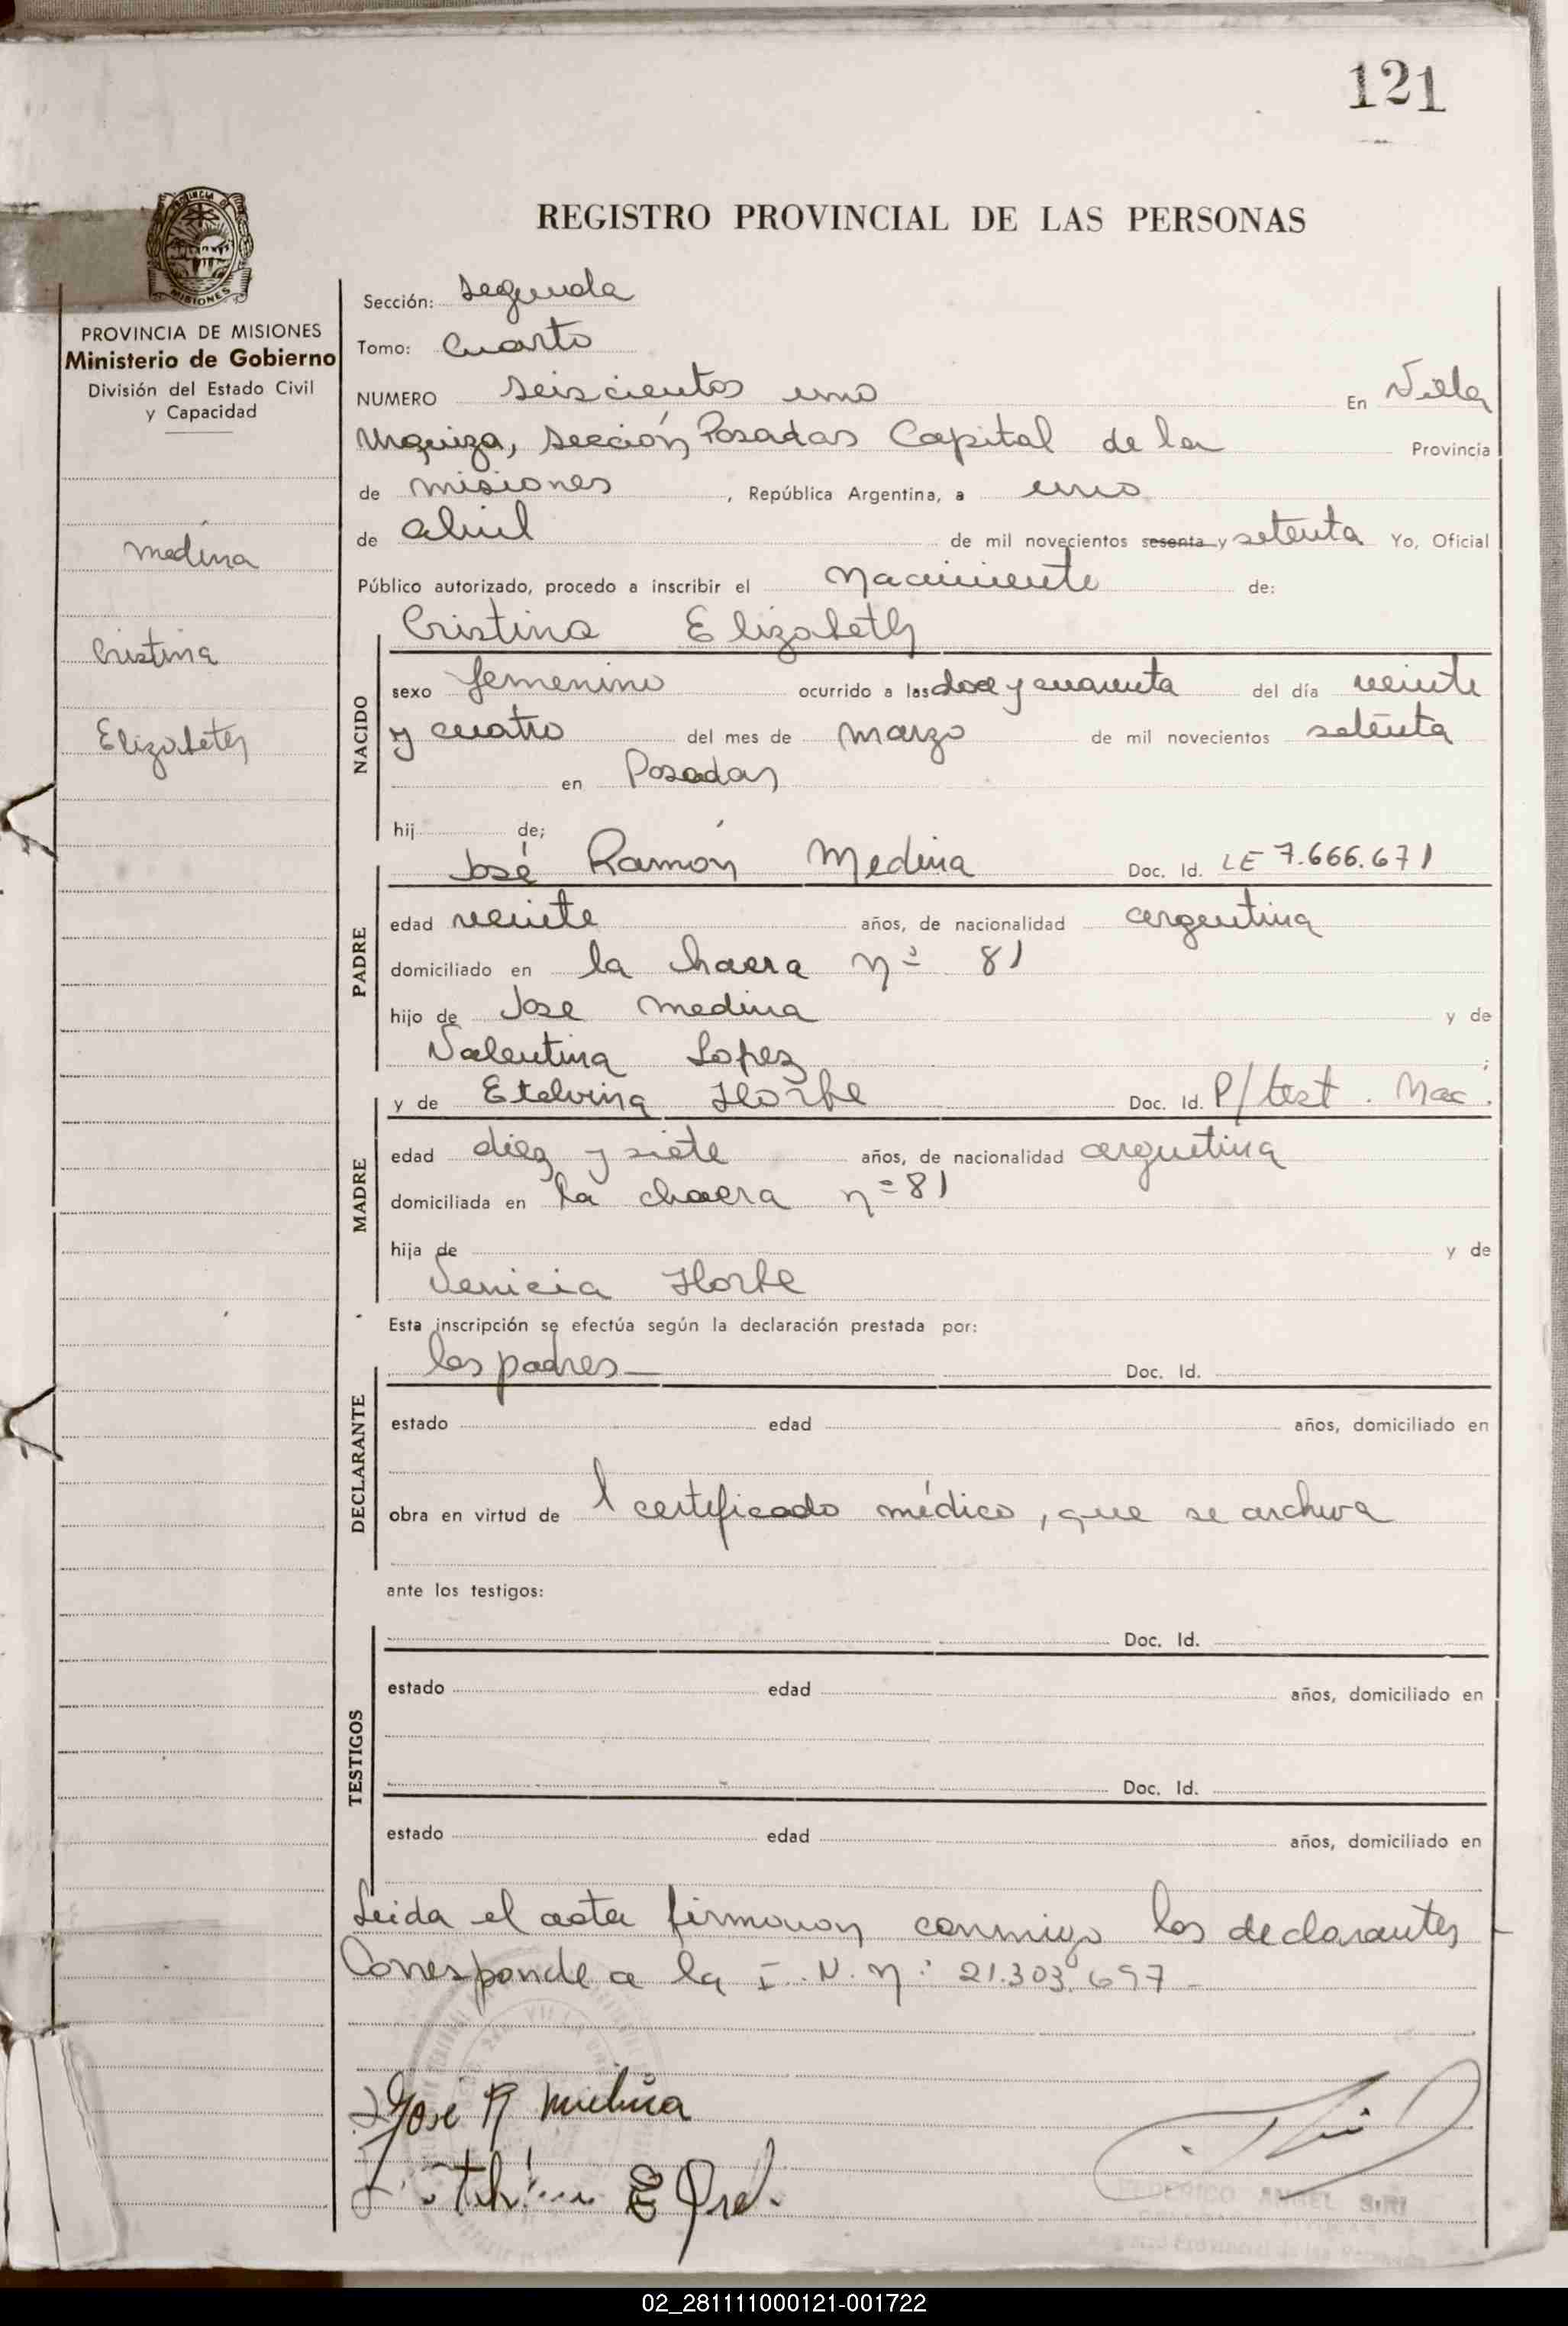 121
PROVINCIA DE MISIONES
Ministerio de Gobierno
División del Estado Civil
y Capacidad
medina
Cristina
Elizabeth
REGISTRO PROVINCIAL DE LAS PERSONAS
Sección: segunda
Tomo: Cuarto
NUMERO seiscientos uno En Villa
Urquiza, sección Posadas Capital de la Provincia
de misiones, República Argentina, a uno
de abril de mil novecientos sesenta y setenta Yo, Oficial
Público autorizado, procedo a inscribir el nacimiento de:
Cristina Elizabeth
NACIDO
sexo femenino ocurrido a las doce y cuarenta del día veinte
y cuatro del mes de marzo de mil novecientos setenta
en Posadas
hij de;
José Ramón Medina Doc. Id. LE 7.666.671
PADRE
edad veinte años, de nacionalidad argentina
domiciliado en la chacra nº 81
hijo de Jose medina y de
Valentina Lopez ;
y de Etelvina Doc. Id. P/test. Nac.
MADRE
edad diez y siete años, de nacionalidad argentina
domiciliada en la chacra nº 81
hija de y de
Esta inscripción se efectúa según la declaración prestada por:
los padres Doc. Id.
DECLARANTE
estado edad años, domiciliado en
obra en virtud de l certificado médico, que se archiva
ante los testigos:
Doc. Id.
TESTIGOS
estado edad años, domiciliado en
Doc. Id.
estado edad años, domiciliado en
Leida el acta firmaron conmigo los declarantes
Corresponde a la I. N. nº 21.303.697
José R Medina
FEDERICO ANGEL SIRI
02_281111000121-001722